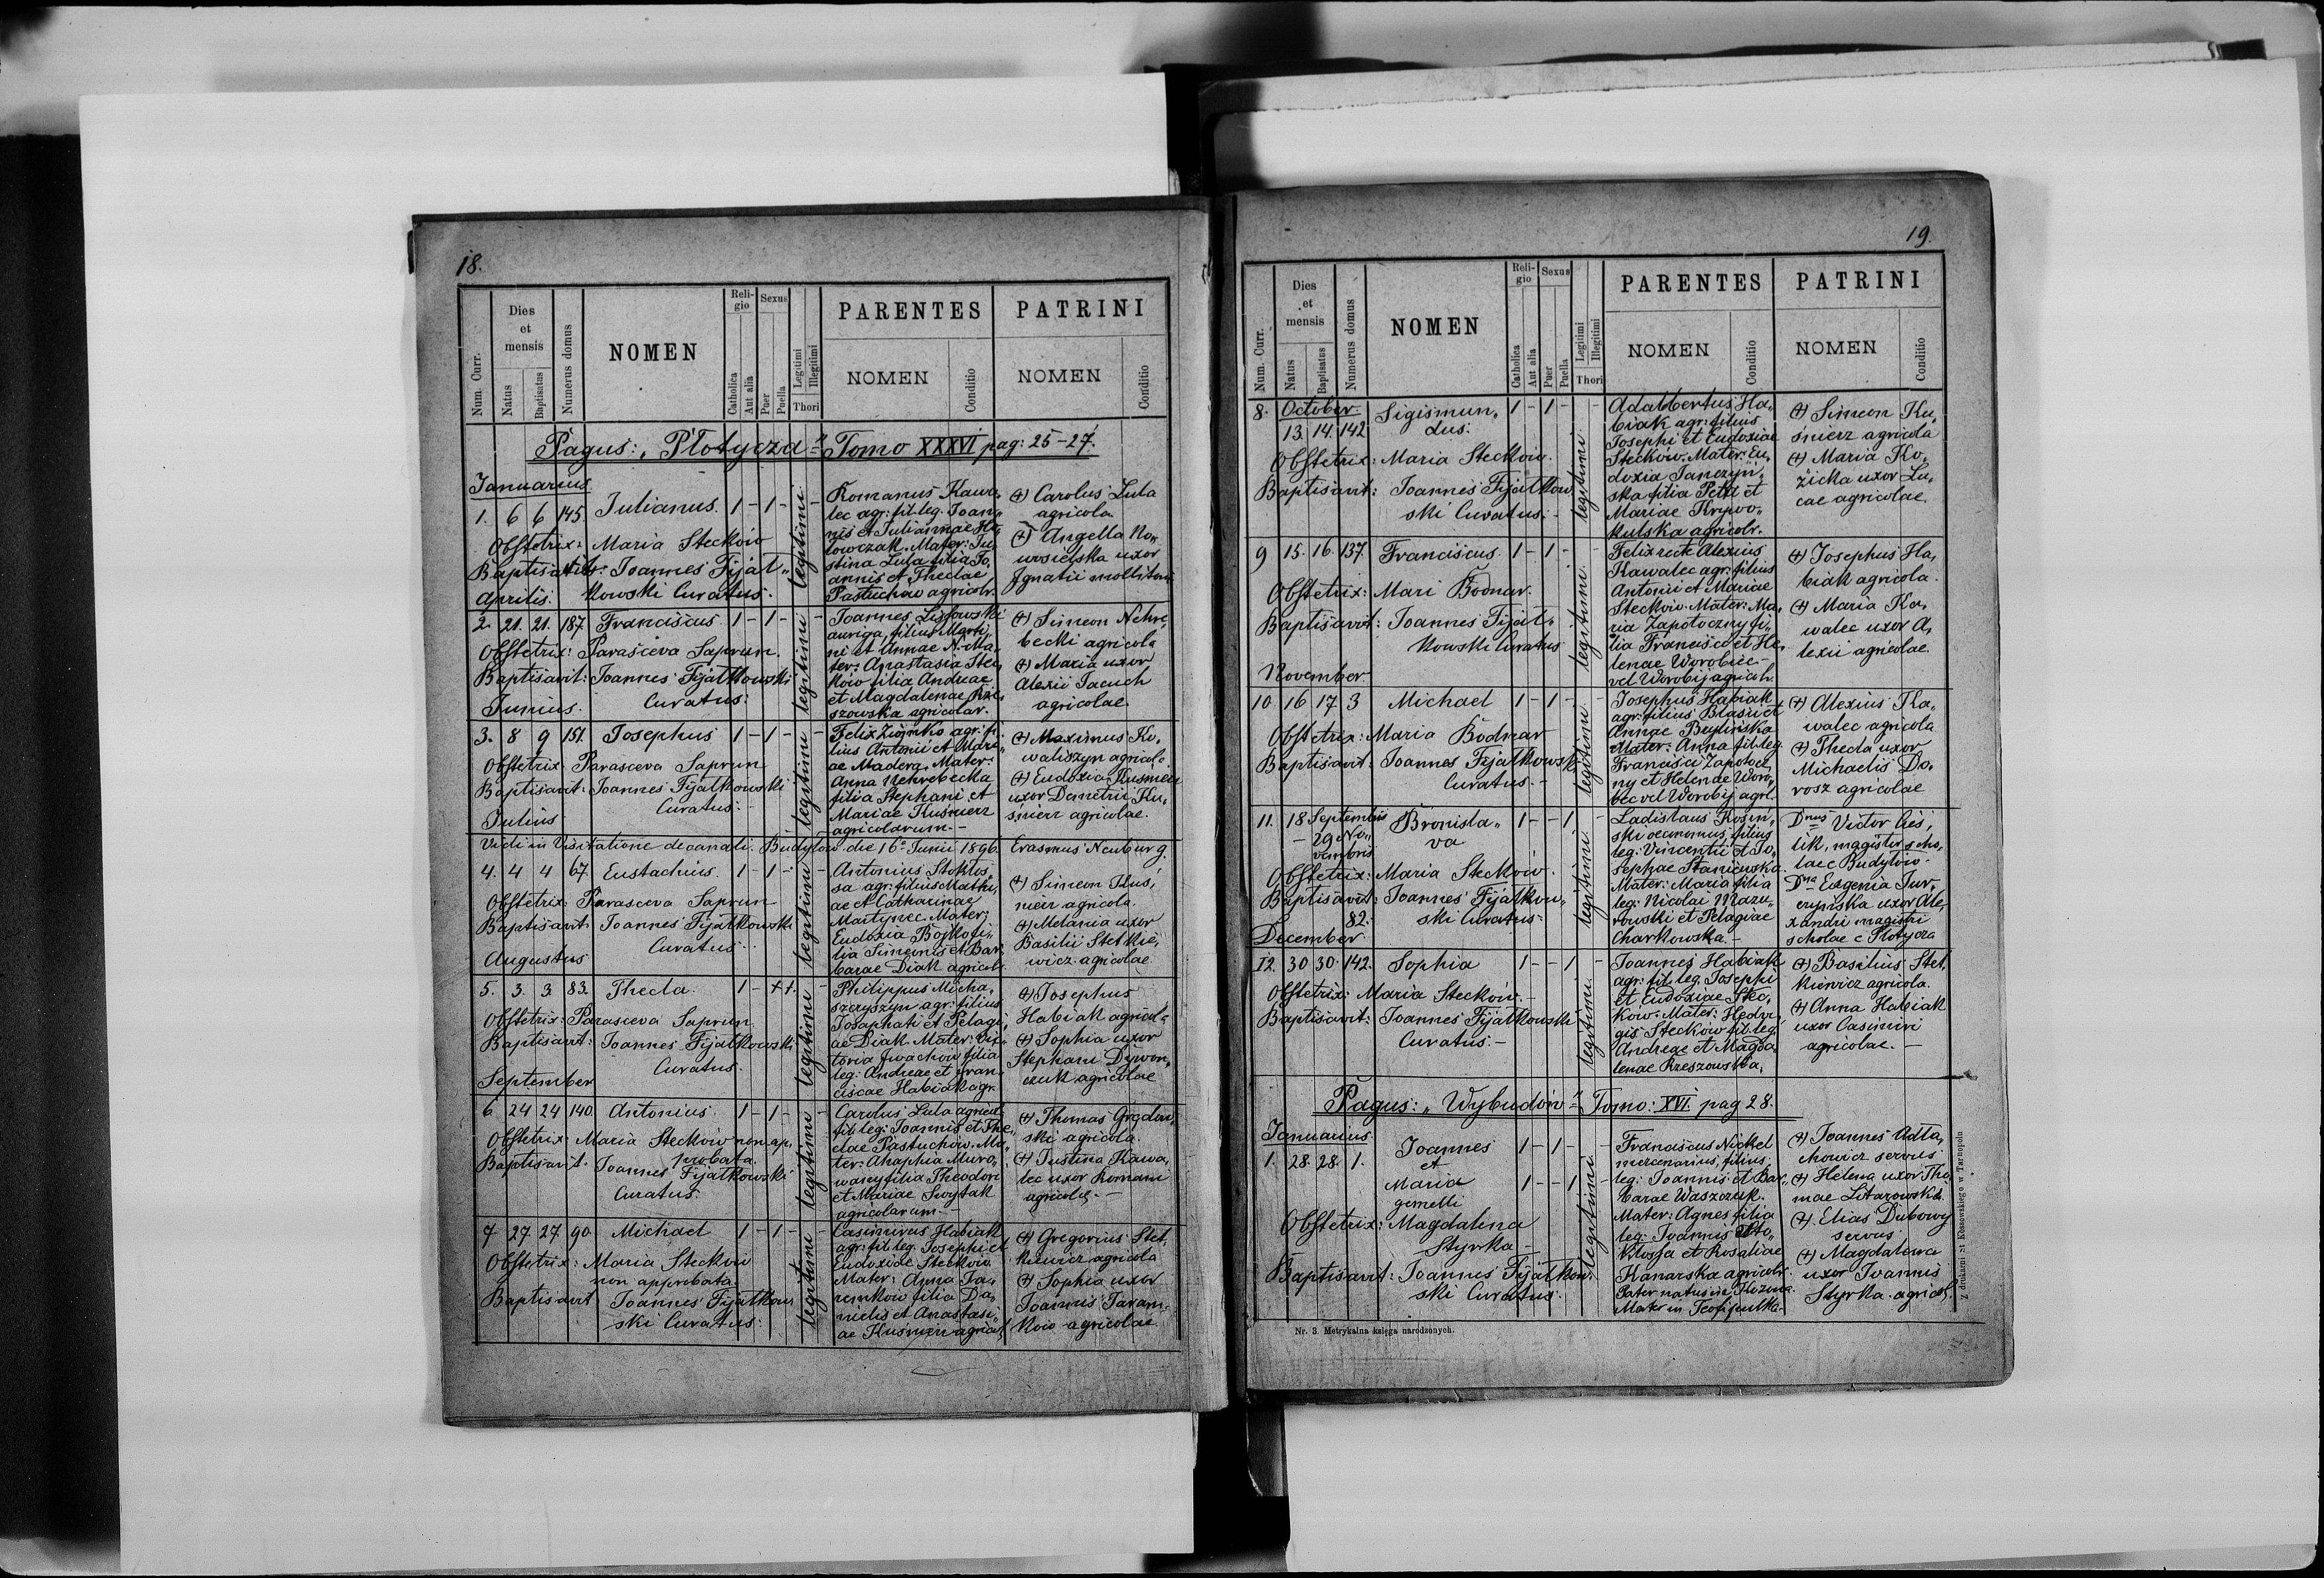 18.
Num. Curr.
Dies et mensis
Natus
Baptisatus
Numerus domus
NOMEN
Religio
Catholica
Aut alia
Sexus
Puer
Puella
Legitimi
Illegitimi
Thori
PARENTES
NOMEN
Conditio
PATRINI
NOMEN
Conditio
Pagus: „Płotycza" Tomo XXXVI pag: 25-27.
Januarius
1. 6 6 145. Julianus. 1 - 1 - -
Obstetrix: Maria Steckow
Baptisavit: Joannes Fijał„
kowski Curatus.
legitimi
Romanus Kawa„
lec agr: fil. leg. Joan„
nis et Juliannae Ha„
łowczak. Mater: Ju„
stina Lula filia Jo„
annis et Theclae
Pastuchow agricolr.
(+) Carolus Lula
agricola.
(+) Angella No„
wosielska uxor
Ignatii mollitoris
Aprilis.
2. 21. 21. 187. Franciscus 1 - 1 - -
Obstetrix: Parasceva Saprun.
Baptisavit: Joannes Fijałkowski
Curatus:
legitimi
Joannes Lissowski
auriga, filius Marti„
ni et Annae N. Ma„
ter: Anastasia Stec„
ków filia Andreae
et Magdalenae Rze„
szowska agricolar.
(+) Simeon Nehre„
becki agricola
(+) Maria uxor
Alexii Jacuch
agricolae.
Junius.
3. 8 9 151. Josephus 1 - 1 - -
Obstetrix: Parasceva Saprun
Baptisavit: Joannes Fijałkowski
Curatus: -
legitimi
Felix Ziomko agr: fi„
lius Antonii et Mari„
ae Madera. Mater:
Anna Nehrebecka
filia Stephani et
Mariae Kusnierz
agricolarum. -
(+) Maximus Ko„
waliszyn agricola
(+) Eudoxia Kusnierz
uxor Demetrii Ku„
śnierz agricolae.
Julius
Vidi in Visitatione decanali. Budyłów die 16ª Junii 1896. Erasmus Neuburg.
4. 4 4 67. Eustachius. 1 - 1 - -
Obstetrix: Parasceva Saprun
Baptisavit: Joannes Fijałkowski
Curatus:
legitimi
Antonius Stokłos„
sa agr: filius Mathi„
ae et Catharinae
Martynec. Mater:
Eudoxia Bojko fi„
lia Simeonis et Bar„
barae Diak agricolr.
(+) Simeon Kuś„
nierz agricola.
(+) Melania uxor
Basilii Stetkie„
wicz agricolae
Augustus
5. 3. 3. 83. Thecla. 1 - + 1.
Obstetrix: Parasceva Saprun.
Baptisavit: Joannes Fijałkowski
Curatus.
legitimi
Philippus Micha„
szczyszyn agr: filius
Josaphati et Pelagi„
ae Diak Mater: Vic„
toria Iwachow filia
leg: Andreae et Fran„
ciscae Habiak agr.
(+) Josephus
Habiak agricola
(+) Sophia uxor
Stephani Dywon„
czuk agricolae
September
6. 24 24 140. Antonius. 1 - 1 - -
Obstetrix: Maria Steckow non ap„
probata
Baptisavit: Joannes Fijałkowski
Curatus:
legitimi
Carolus Lula agricol.
fil. leg: Joannis et The„
clae Pastuchow. Ma„
ter: Ahaphia Muro„
wany filia Theodori
et Mariae Swytak
agricolarum. -
(+) Thomas Grędow„
ski agricola.
(+) Justina Kawa„
lec uxor Romani
agricolae. -
7 27. 27. 90 Michael 1 - 1 - -
Obstetrix: Maria Steckow
non approbata.
Baptisavit: Joannes Fijałkow„
ski Curatus:
legitimi
Casimirus Habiak
agr: fil. leg. Josephi et
Eudoxiae Steckow.
Mater: Anna Ja„
remkow filia Da„
nielis et Anastasi„
ae Kusnierz agricol.
(+) Gregorius Stet„
kiewicz agricola
(+) Sophia uxor
Joannis Jaram„
kow agricolae.
19.
Num. Curr.
Dies et mensis
Natus
Baptisatus
Numerus domus
NOMEN
Religio
Catholica
Aut alia
Sexus
Puer
Puella
Legitimi
Illegitimi
Thori
PARENTES
NOMEN
Conditio
PATRINI
NOMEN
Conditio
8. October
13. 14. 142 Sigismun„ 1 - 1 - -
dus.
Obstetrix: Maria Steckow.
Baptisavit: Joannes Fijałkow„
ski Curatus: -
legitimi
Adalbertus Ha„
biak agr: filius
Josephi et Eudoxiae
Steckow. Mater: Eu„
doxia Janczyń„
ska filia Petri et
Mariae Krywo„
kulska agricolr.
(+) Simeon Ku„
śnierz agricola
(+) Maria Ko„
zicka uxor Lu„
cae agricolae.
9 15. 16. 137. Franciscus. 1 - 1 - -
Obstetrix: Mari Bodnar.
Baptisavit: Joannes Fijał„
kowski Curatus
legitimi
Felix recte Alexius
Kawalec agr: filius
Antonii et Mariae
Steckow. Mater: Ma„
ria Zapotoczny fi„
lia Francisci et He„
lenae Worobiec
vel Worobij agricolr.
(+) Josephus Ha„
biak agricola.
(+) Maria Ka„
walec uxor A„
lexii agricolae.
November.
10 16 17. 3 Michael 1 - 1 - -
Obstetrix: Maria Bodnar
Baptisavit: Joannes Fijałkowski
Curatus. -
legitimi
Josephus Habiak
agr: filius Blasii et
Annae Bylinska
Mater: Anna fil. leg
Francisci Zapotocz„
ny et Helenae Woro„
bec vel Worobij agrl.
(+) Alexius Ka„
walec agricola
(+) Thecla uxor
Michaelis Do„
rosz agricolae
11. 18 Septembris Bronisla„ 1 - - 1 -
- 29 No„ va
vembris
Obstetrix: Maria Steckow.
Baptisavit: Joannes Fijałkow„
82. ski Curatus.
legitimi
Ladislaus Kosin„
ski oeconomus, filius
leg: Vincentii et Jo„
sephae Staniewska.
Mater: Maria filia
leg: Nicolai Mazu„
rowski et Pelagiae
Charkowska. -
Dnus Victor Cieś„
lik, magister scho„
lae c Budyłów.
Dna Eugenia Jur„
czynska uxor Ale„
xandri magistri
scholae c Płotycza
December.
12. 30 30. 142. Sophia 1 - - 1 -
Obstetrix: Maria Steckow. -
Baptisavit: Joannes Fijałkowski
Curatus. -
legitimi
Joannes Habiak
agr: fil. leg. Josephi
et Eudoxiae Stec„
kow. Mater: Hedvi„
gis Steckow fil. leg.
Andreae et Magda„
lenae Rzeszowska.
(+) Basilius Stet„
kiewicz agricola.
(+) Anna Habiak
uxor Casimiri
agricolae. -
Pagus: „Wybudów" Tomo: XVI. pag 28.
Januarius.
1. 28. 28. 1. Joannes 1 - 1 - -
et
Maria 1 - - 1 -
gemelli
Obstetrix: Magdalena
Styrka -
Baptisavit: Joannes Fijałkow„
ski Curatus.
legitimi
Franciscus Nickel
mercenarius, filius
leg: Joannis et Bar„
barae Waszczuk.
Mater: Agnes filia
leg: Joannis Sto„
kłossa et Rosaliae
Kanarska agricolr.
Pater natus in Kozowa.
Mater in Teofipulka.
(+) Joannes Adla„
chowicz servus
(+) Helena uxor Tho„
mae Litarowski.
(+) Elias Dubowy
servus
(+) Magdalena
uxor Joannis
Styrka agricol.
Nr. 3. Metrykalna księga narodzonych.
Z drukarni St Kossowskiego w Tarnopolu